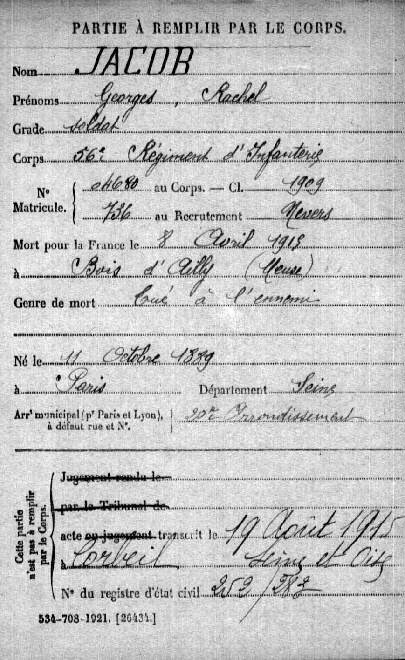 PARTIE À REMPLIR PAR LE CORPS.
Nom JACOB
Prénoms Georges, Rachel
Grade soldat
Corps 56e Régiment d'Infanterie
N° Matricule. 04680 au Corps. — Cl. 1909
736 au Recrutement Nevers
Mort pour la France le 8 Avril 1915
à Bois d'Ailly (Meuse)
Genre de mort tué à l'ennemi
Né le 11 Octobre 1889
à Paris Département Seine
Arrt municipal (pr Paris et Lyon), 20e Arrondissement
à défaut rue et N°.
Cette partie n'est pas à remplir par le Corps.
Jugement rendu le
par le Tribunal de
acte ou jugement transcrit le 19 Août 1915
à Corbeil Seine et Oise
N° du registre d'état civil 252/282
534-708-1921. [26434.]